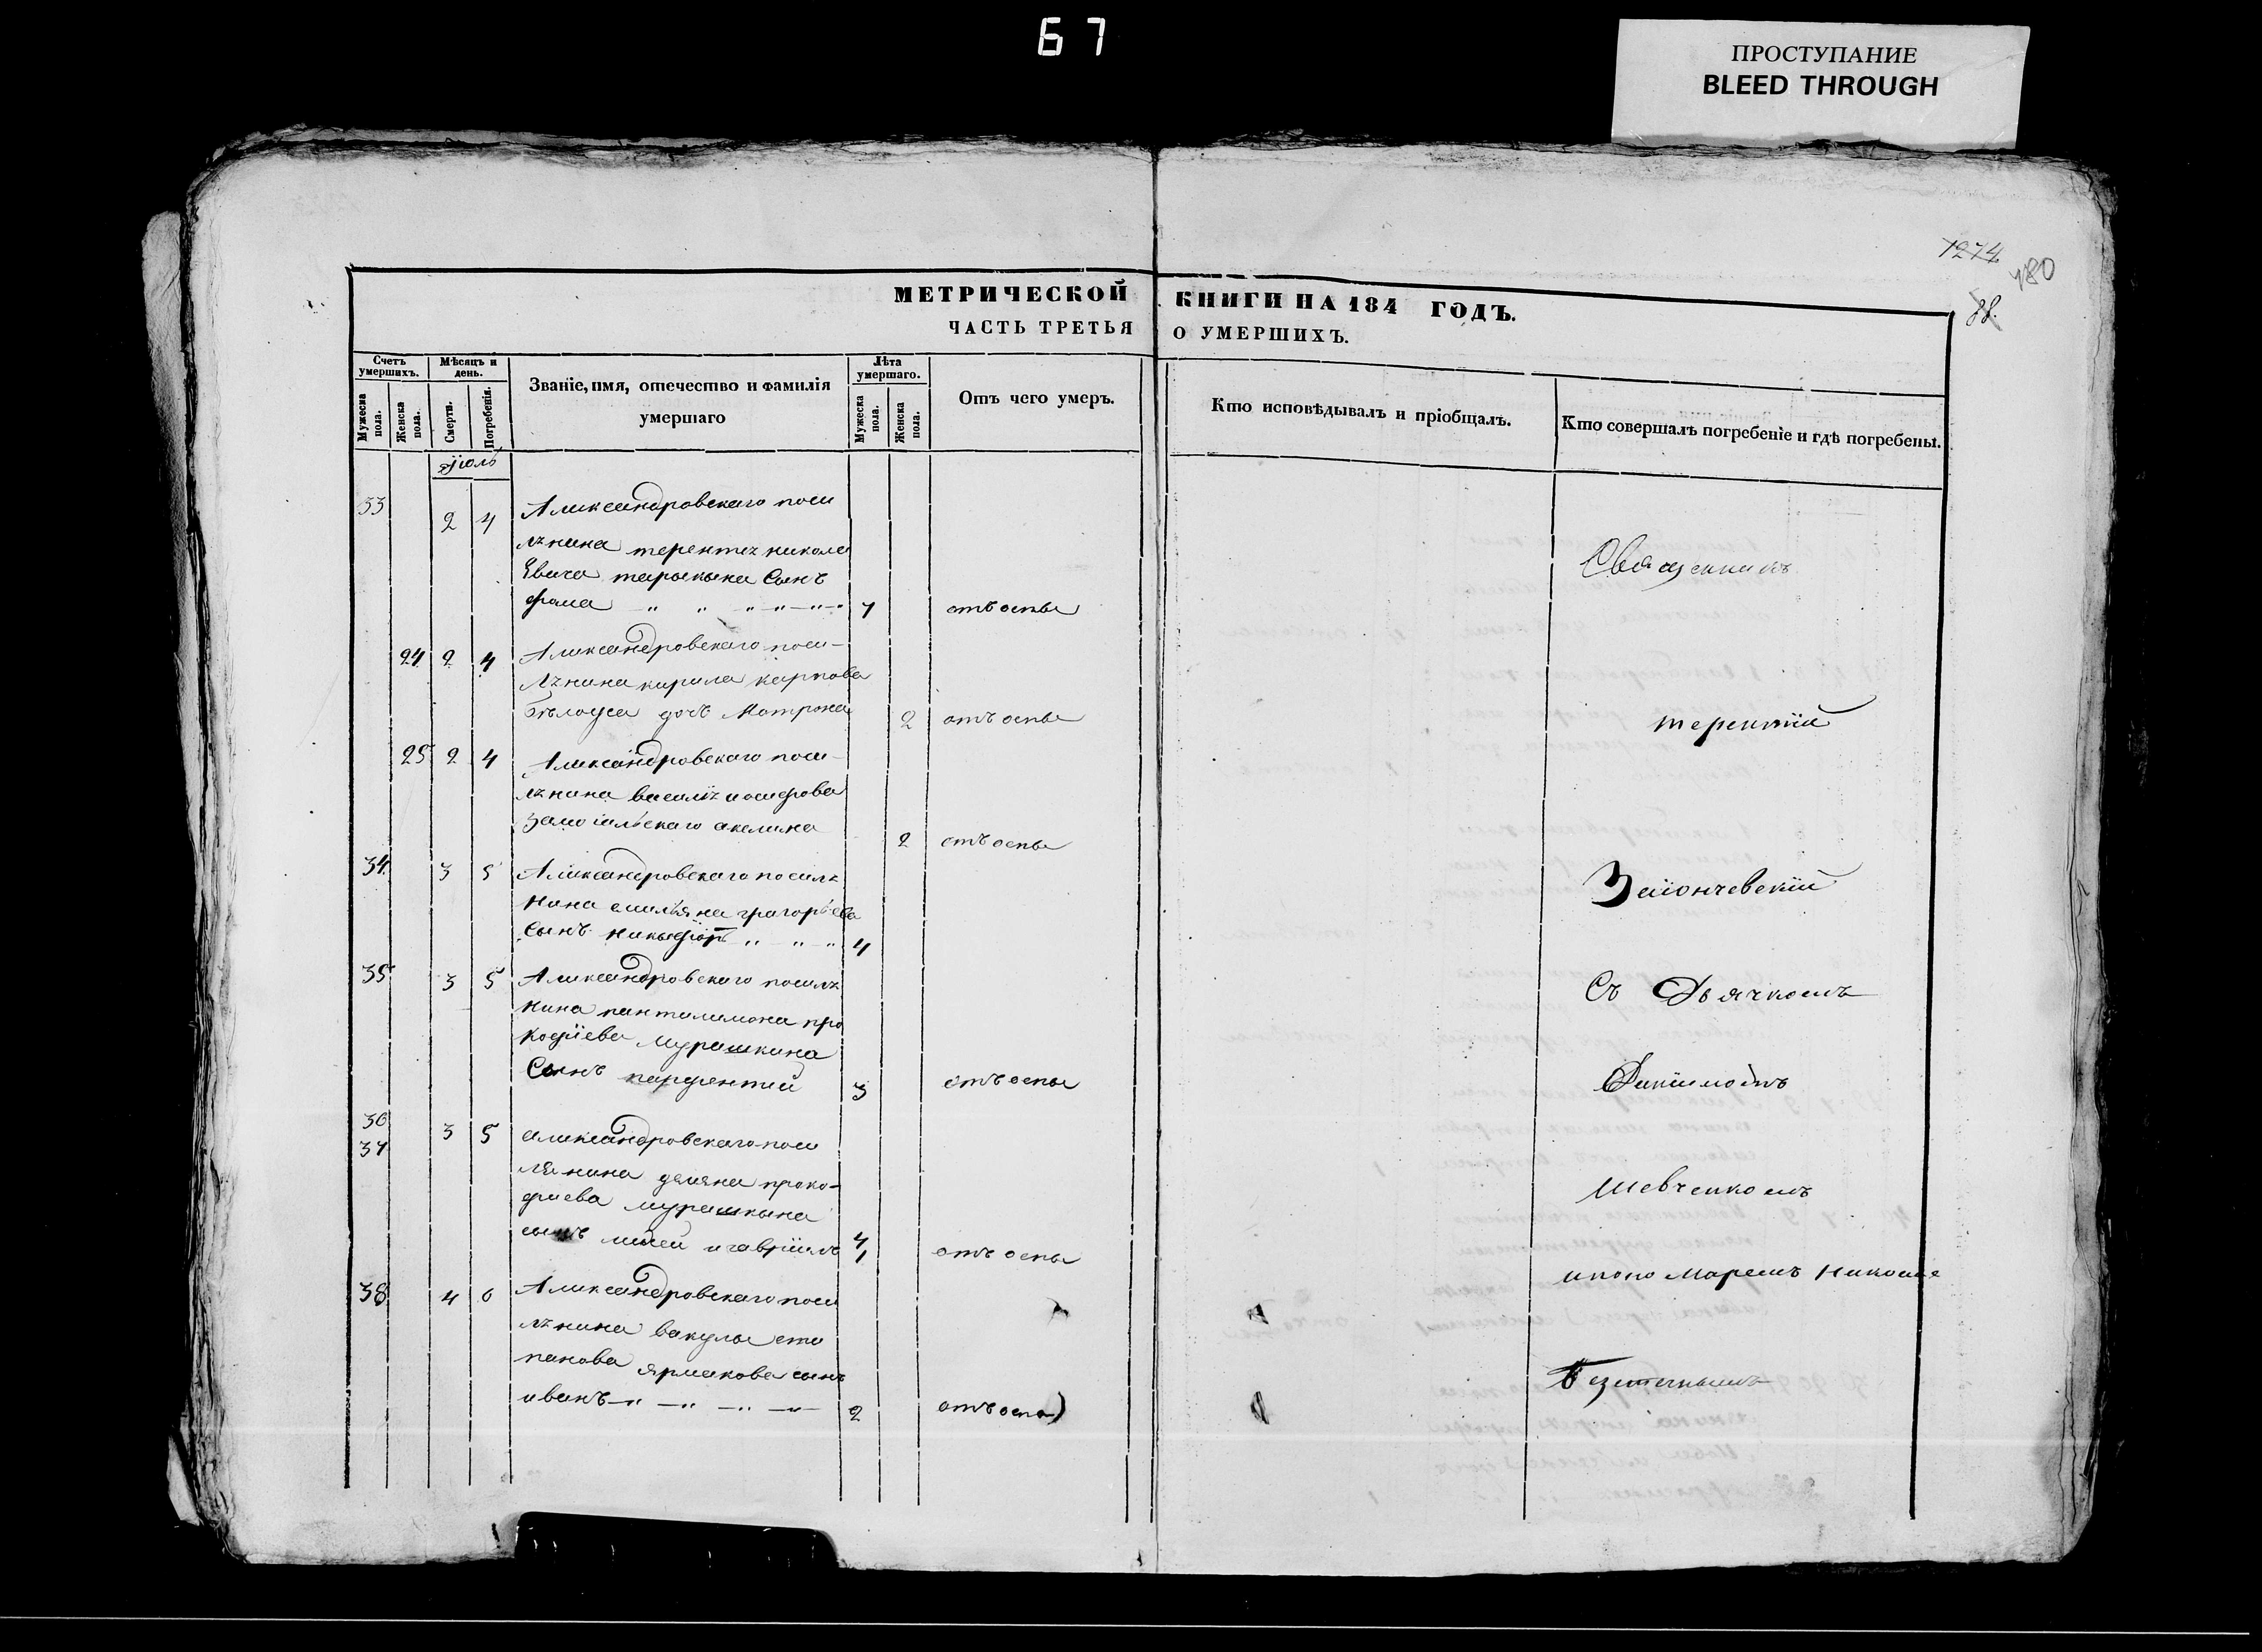 67
ПРОСТУПАНИЕ
BLEED THROUGH
1274
480
88.
МЕТРИЧЕСКОЙ КНИГИ НА 184 ГОДЪ.
ЧАСТЬ ТРЕТЬЯ О УМЕРШИХЪ.
Счетъ умершихъ.
Мѣсяцъ и день.
Званіе, имя, отечество и фамилія умершаго
Лѣта умершаго.
Отъ чего умеръ.
Кто исповѣдывалъ и пріобщалъ.
Кто совершалъ погребеніе и гдѣ погребены.
Мужеска пола.
Женска пола.
Смерти.
Погребенія.
Мужеска пола.
Женска пола.
33
2 4
Александровскаго посе
лянина терентия никола
Евича сынъ
фома
отъ оспы
Священникъ
24 2 4
Александровскаго посе-
лянина кирила карпова
Бѣлоуса дочь Матрона 2 отъ оспы
терентій
25 2 4
Александровскаго посе-
лянина василия иосифова
акелина 2 отъ оспы
34 3 5 Александровскаго поселя
нина емильяна григорьева
Сынъ никифоръ 4
Заіончевскій
35 3 5 Александровскаго поселя
нина пантилимона про
кофіева мурашкина
Сынъ парфентий 3 отъ оспы
Съ Дьячкомъ
36
37
3 5 александровскаго посе
лянина демяна проко-
фиева мурашкина
и гавріилъ 4 1 отъ оспы
Шевченкомъ
38 4 6 Александровскаго посе
лянина вакулы сте
панова ярмакова сынъ
иванъ 2 отъ оспы
и поно Маремъ Николае